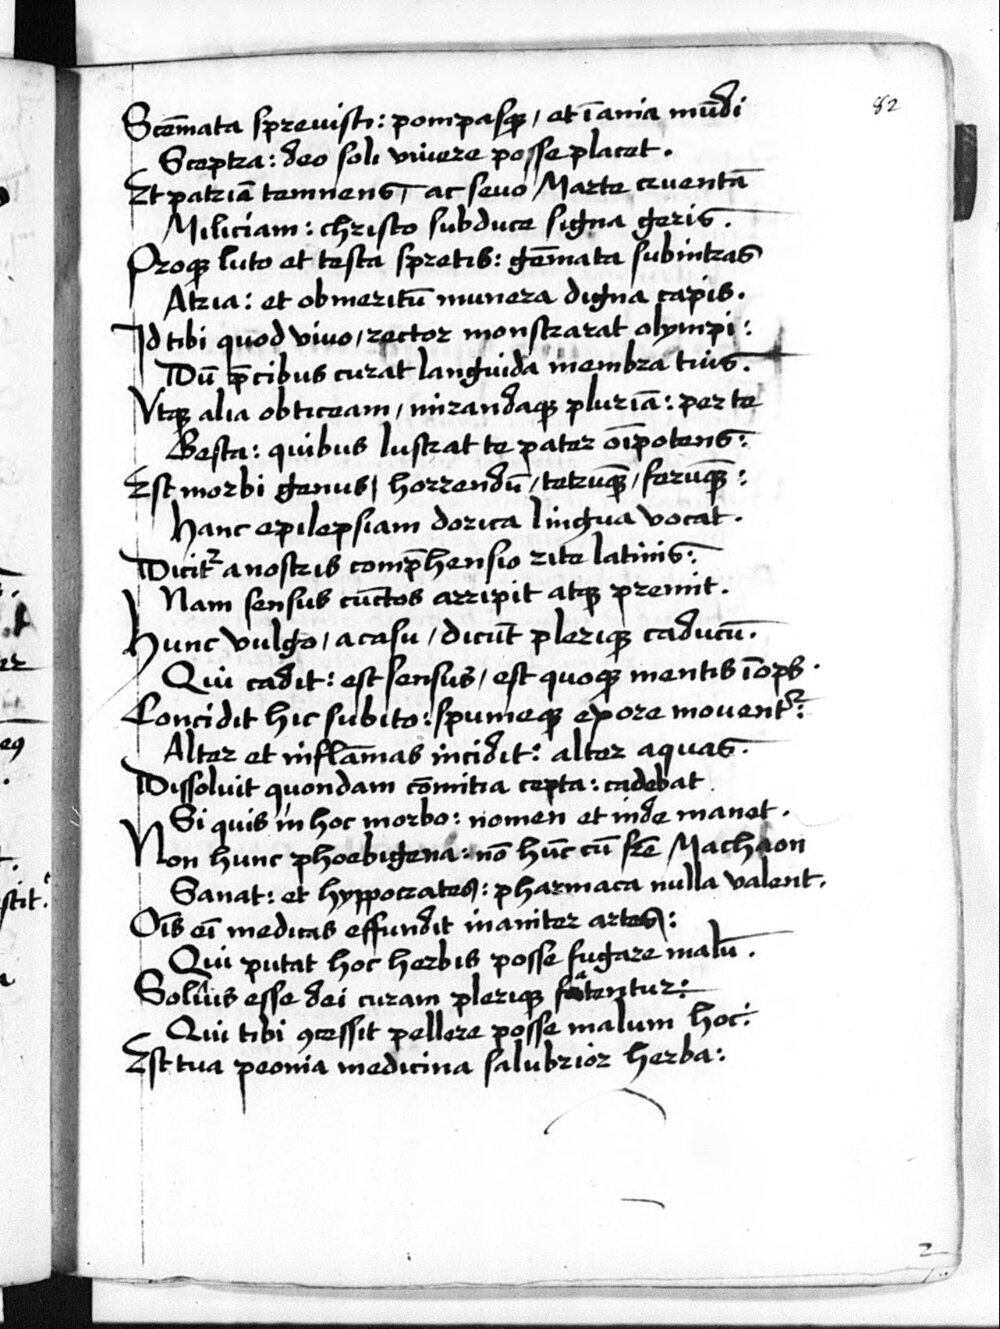 82
Scēmata sprevisti: pompasqꝫ, et īania mūdi
Sceptra: deo soli vivere posse placet.
Et patriā temnens, ac sevo Marte cruentā
Miliciam: christo subduce signa geris.
Proqꝫ luto et testa spretis: gēmata subintras
Atria: et obmeritū munera digna capis.
Id tibi quod vivo, rector monstrarat olympi:
Dū p̄cibus curat languida membra tuis.
Vtqꝫ alia obticeam, mirandaqꝫ pluriā: per te
Gesta: quibus lustrat te pater oīpotens:
Est morbi genus, horrendū, tetrūqꝫ, ferūqꝫ:
Hanc epilepsiam dorica lingua vocat.
Dicitᷣ a nostris comp̄hensio rite latinis:
Nam sensus cūctos arripit atqꝫ premit.
Hunc vulgo, a casu, dicūt pleriqꝫ caducū.
Qui cadit: est sensus, est quoqꝫ mentis īops.
Concidit hic subito: spumeqꝫ e pore moventᷣ:
Alter et inflāmas incidit: alter aquas.
Dissoluit quondam cōmitia cepta: cadebat
Si quis in hoc morbo: nomen et inde manet.
Non hunc phoebigena: nō hūc cū fr̄e Machaon
Sanat: et hyppocrates: pharmaca nulla valent.
Oīs eī medicas effundit inaniter artes:
Qui putat hoc herbis posse fugare malū.
Soliꝰ esse dei curam pleriqꝫ fatentur:
Qui tibi ꝯcessit pellere posse malum hoc:
Est tua peonia medicina salubrior herba:
2